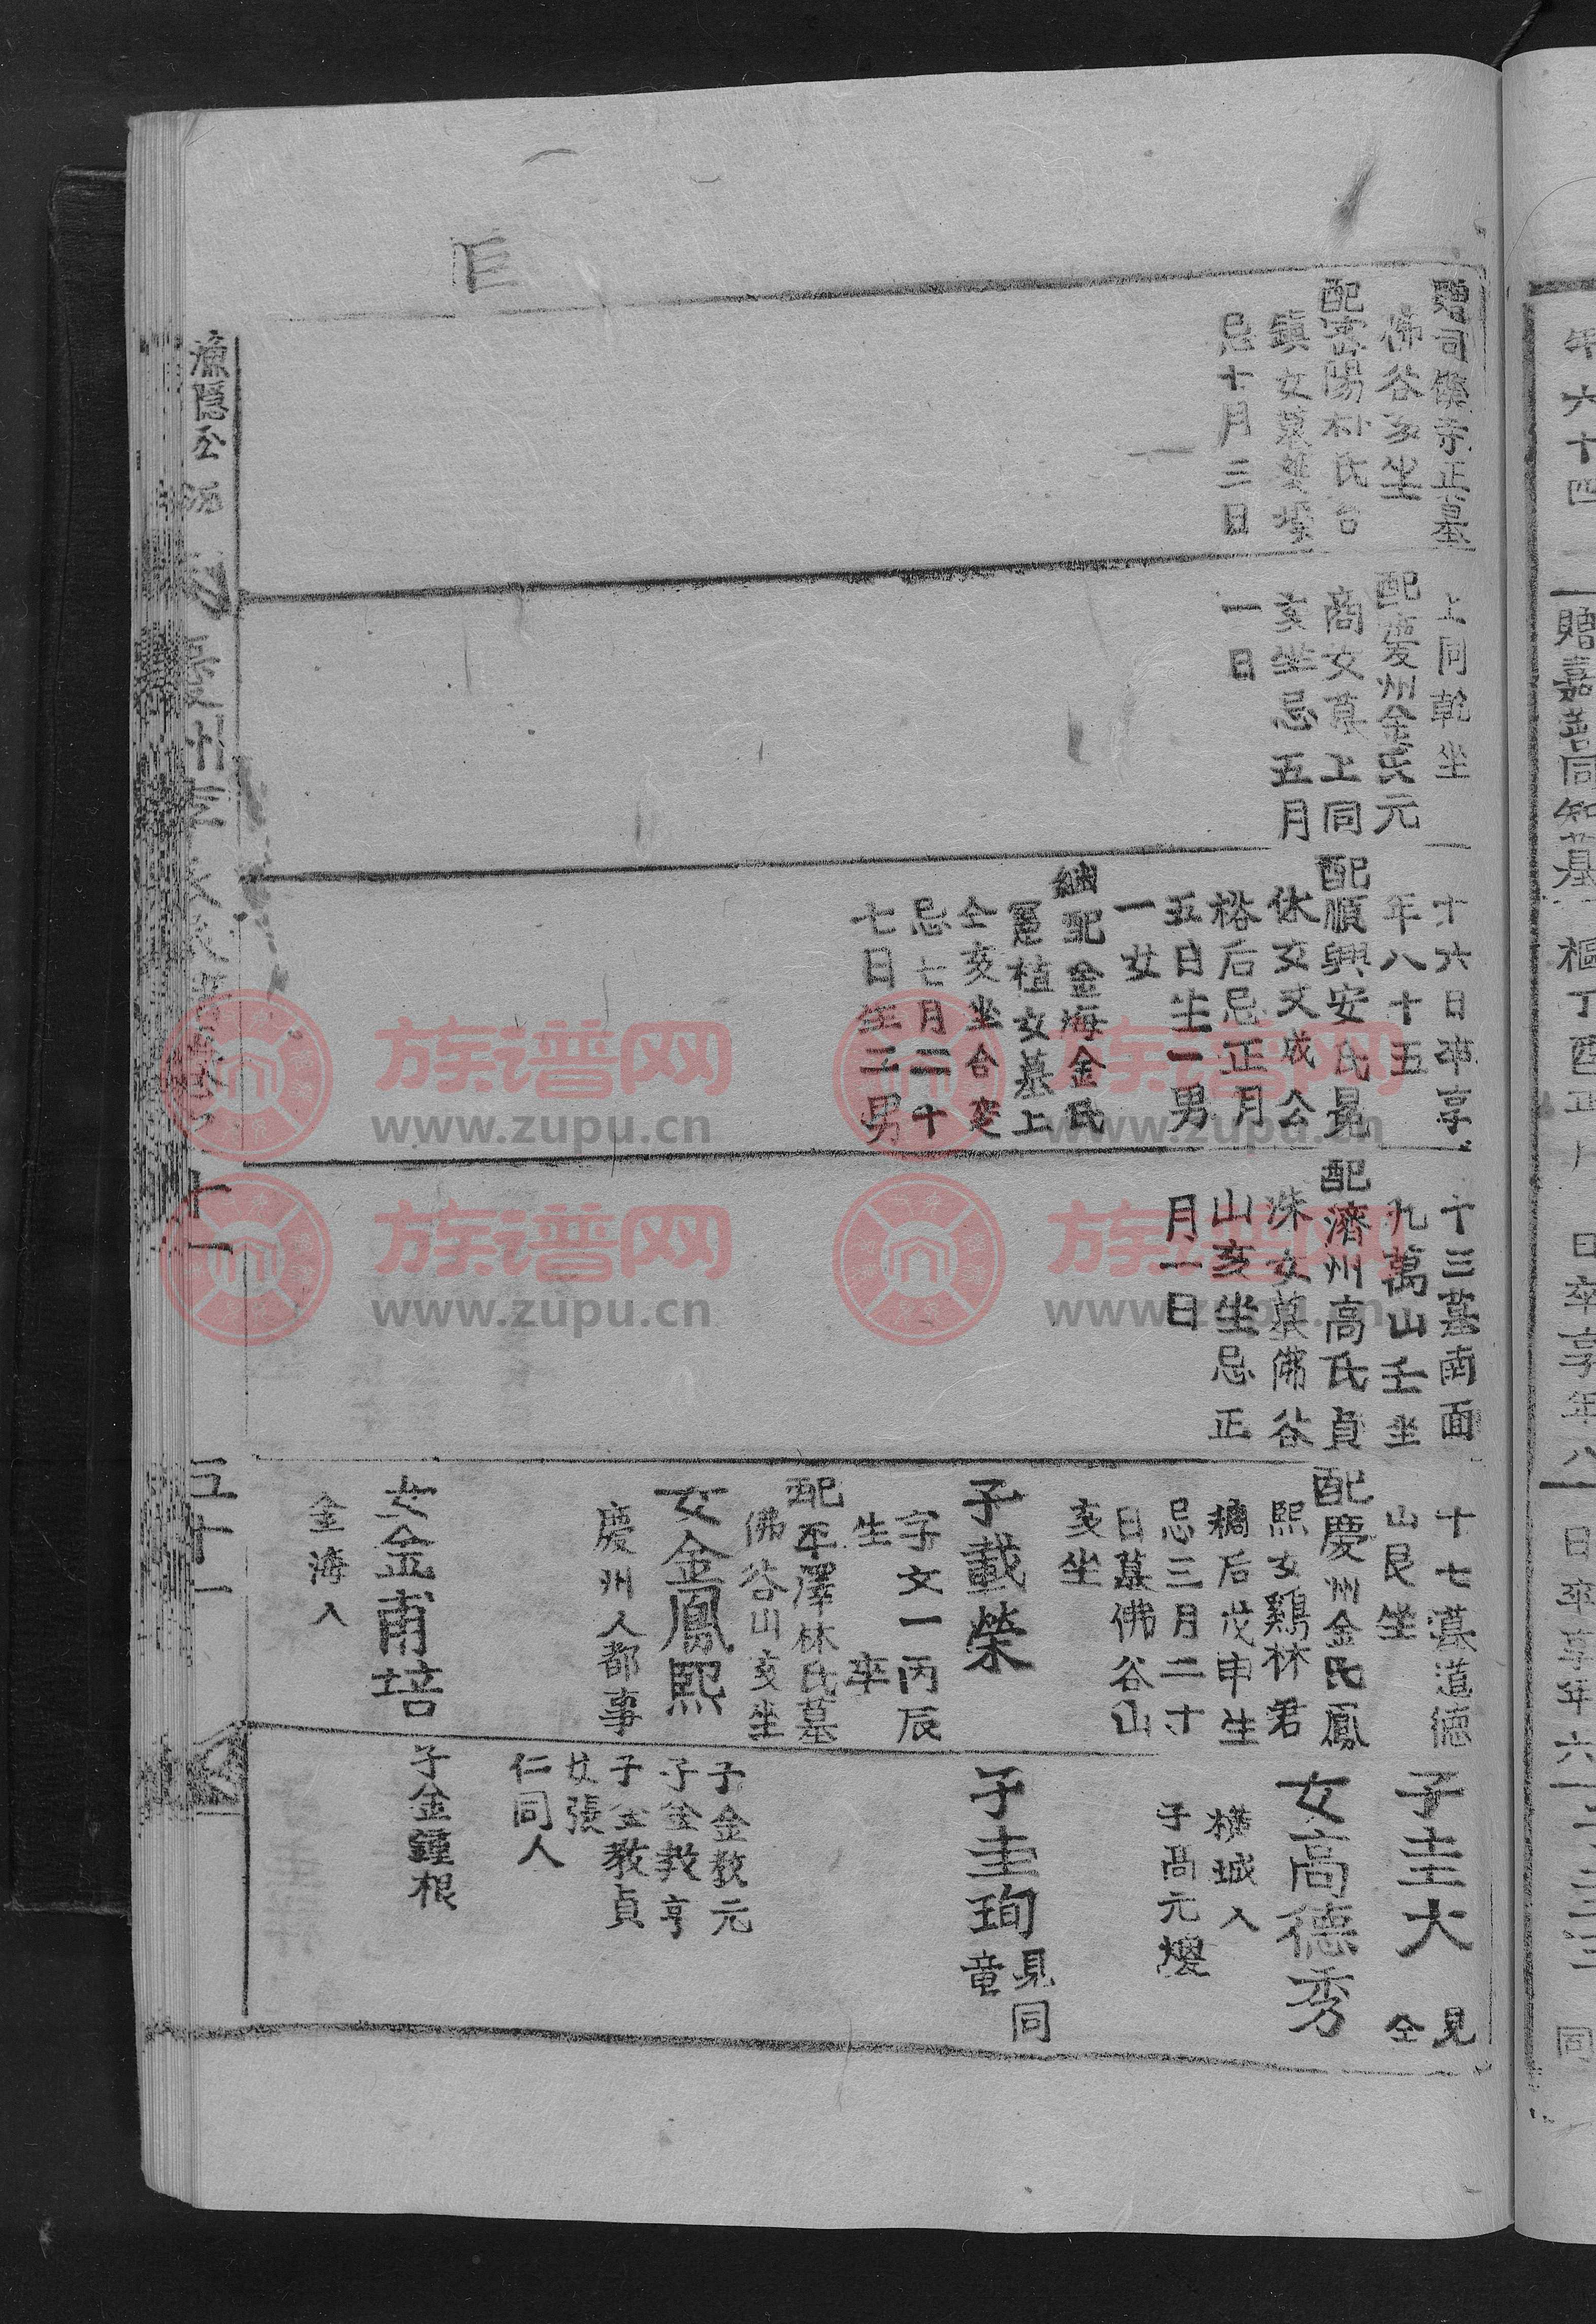 贈司僕寺正墓
佛谷亥坐
配 陽朴氏台
鎭女墓
忌十月三日
上同乾坐
配慶州金氏元
商女墓上同
亥坐忌五月
一日
十六日卒享
年八十五
配順興安氏晃
休女文成公
裕后忌正月
五日生一男
一女
継配金海金氏
憲植女墓上
仝亥坐合窆
忌七月二十
七日生二男
十三墓南面
九萬山壬坐
配濟州高氏貞
洙女墓佛谷
山亥坐忌正
月一日
十七墓道德
山艮坐
配慶州金氏鳳
熙女鷄林君
稇后戊申生
忌三月二十
日墓佛谷山
亥坐
子載榮
字文一丙辰
生 卒
配平澤林氏墓
佛谷山亥坐
女金鳳熙
慶州人都事
女金甫培
金海人
子圭大 見
仝
女高德秀
橫城人
子高元燮
子圭珣 見同
竜
子金教元
子金教亨
子金教貞
女張
仁同人
子金鍾根
漁隱公派
慶州李氏
十一
五十一
年六十四
贈嘉善同知墓
樞丁酉正月
日卒享年八
日卒享年六
同
族谱网
www.zupu.cn
族谱网
www.zupu.cn
族谱网
www.zupu.cn
族谱网
www.zupu.cn